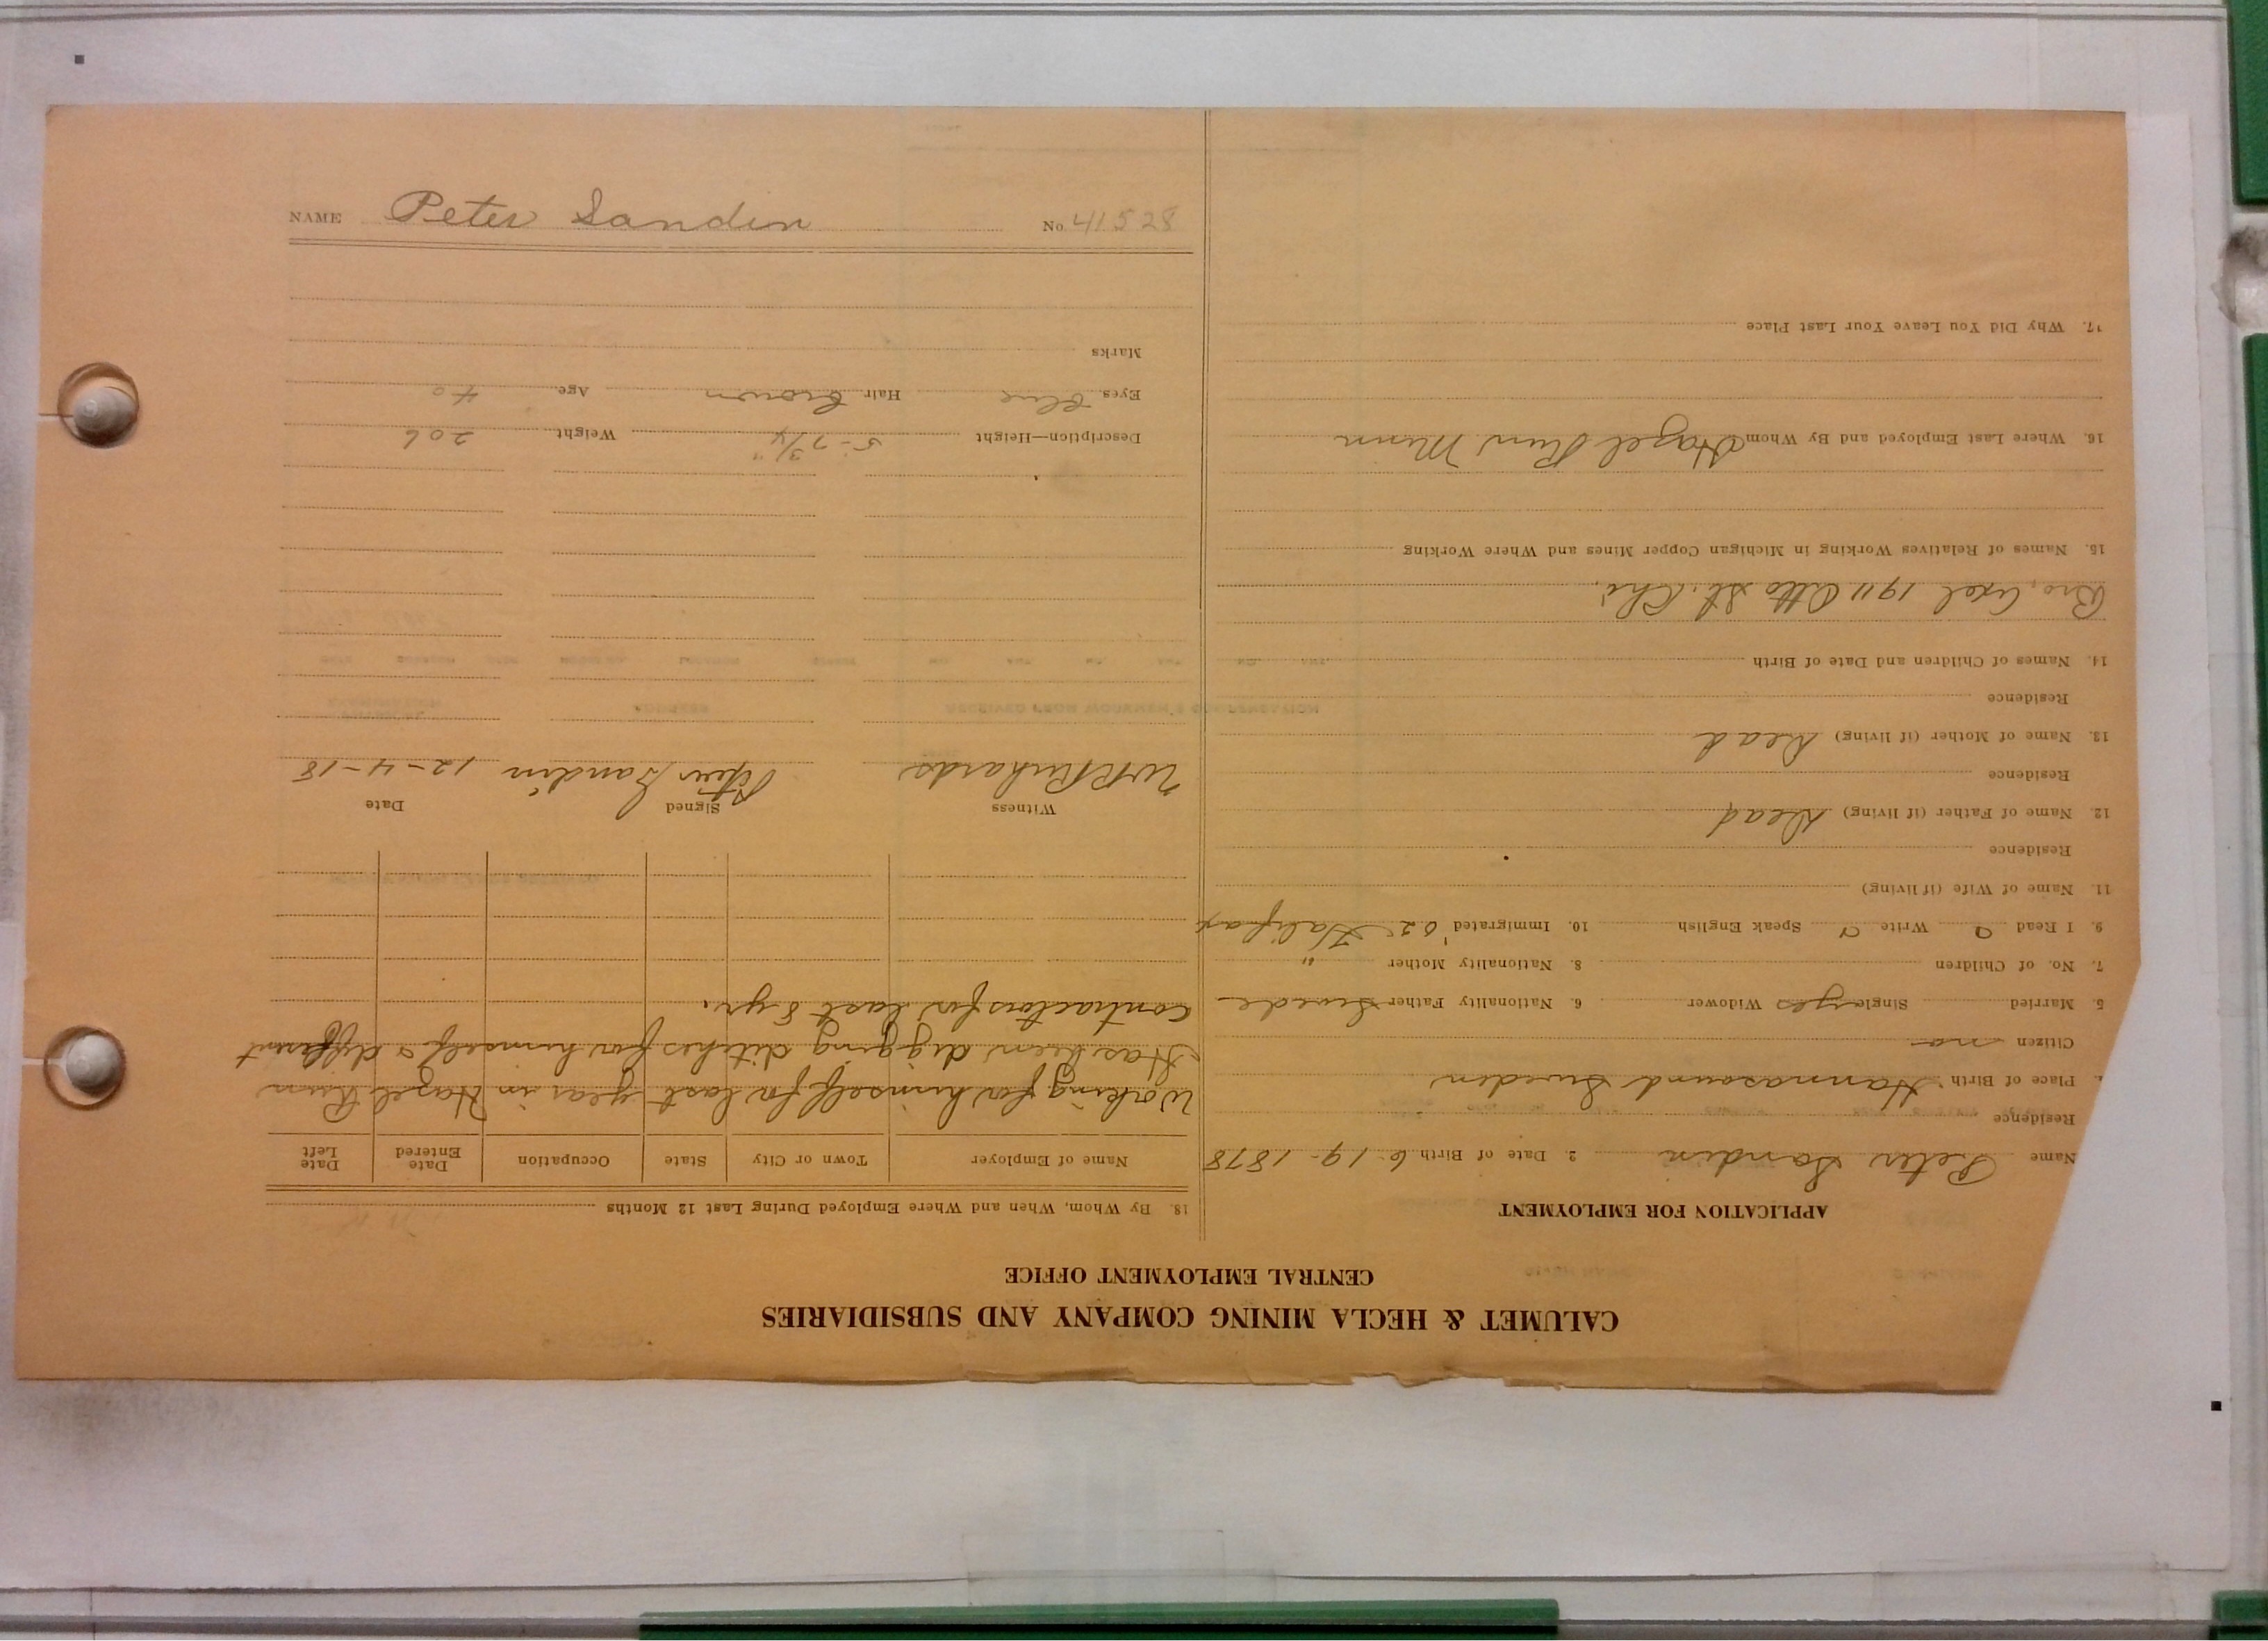 CALUMET & HECLA MINING COMPANY AND SUBSIDIARIES
CENTRAL EMPLOYMENT OFFICE
APPLICATION FOR EMPLOYMENT
Name Peter Sandin 2. Date of Birth 6-19-1878
Residence
Place of Birth Hannasound Sweden
Citizen no
5. Married Single yes Widower 6. Nationality Father Swede
7. No. of Children 8. Nationality Mother "
9. I Read a Write a Speak English 10. Immigrated '02 Halifax
11. Name of Wife (if living)
Residence
12. Name of Father (if living) Dead
Residence
13. Name of Mother (if living) Dead
Residence
14. Names of Children and Date of Birth
Bro, Axel 1911 Otto St. Chi.
15. Names of Relatives Working in Michigan Copper Mines and Where Working
16. Where Last Employed and By Whom Hazel Run Minn
17. Why Did You Leave Your Last Place
18. By Whom, When and Where Employed During Last 12 Months
Name of Employer Town or City State Occupation Date Entered Date Left
Working for himself for last year in Hazel Run
Has been digging ditches for himself & different
contractors for last 8 yr.
Witness Signed Date
W R Richards Peter Sandin 12-4-18
Description—Height 5-7 3/4" Weight 206
Eyes Blue Hair Brown Age 40
Marks
NAME Peter Sandin No. 41528